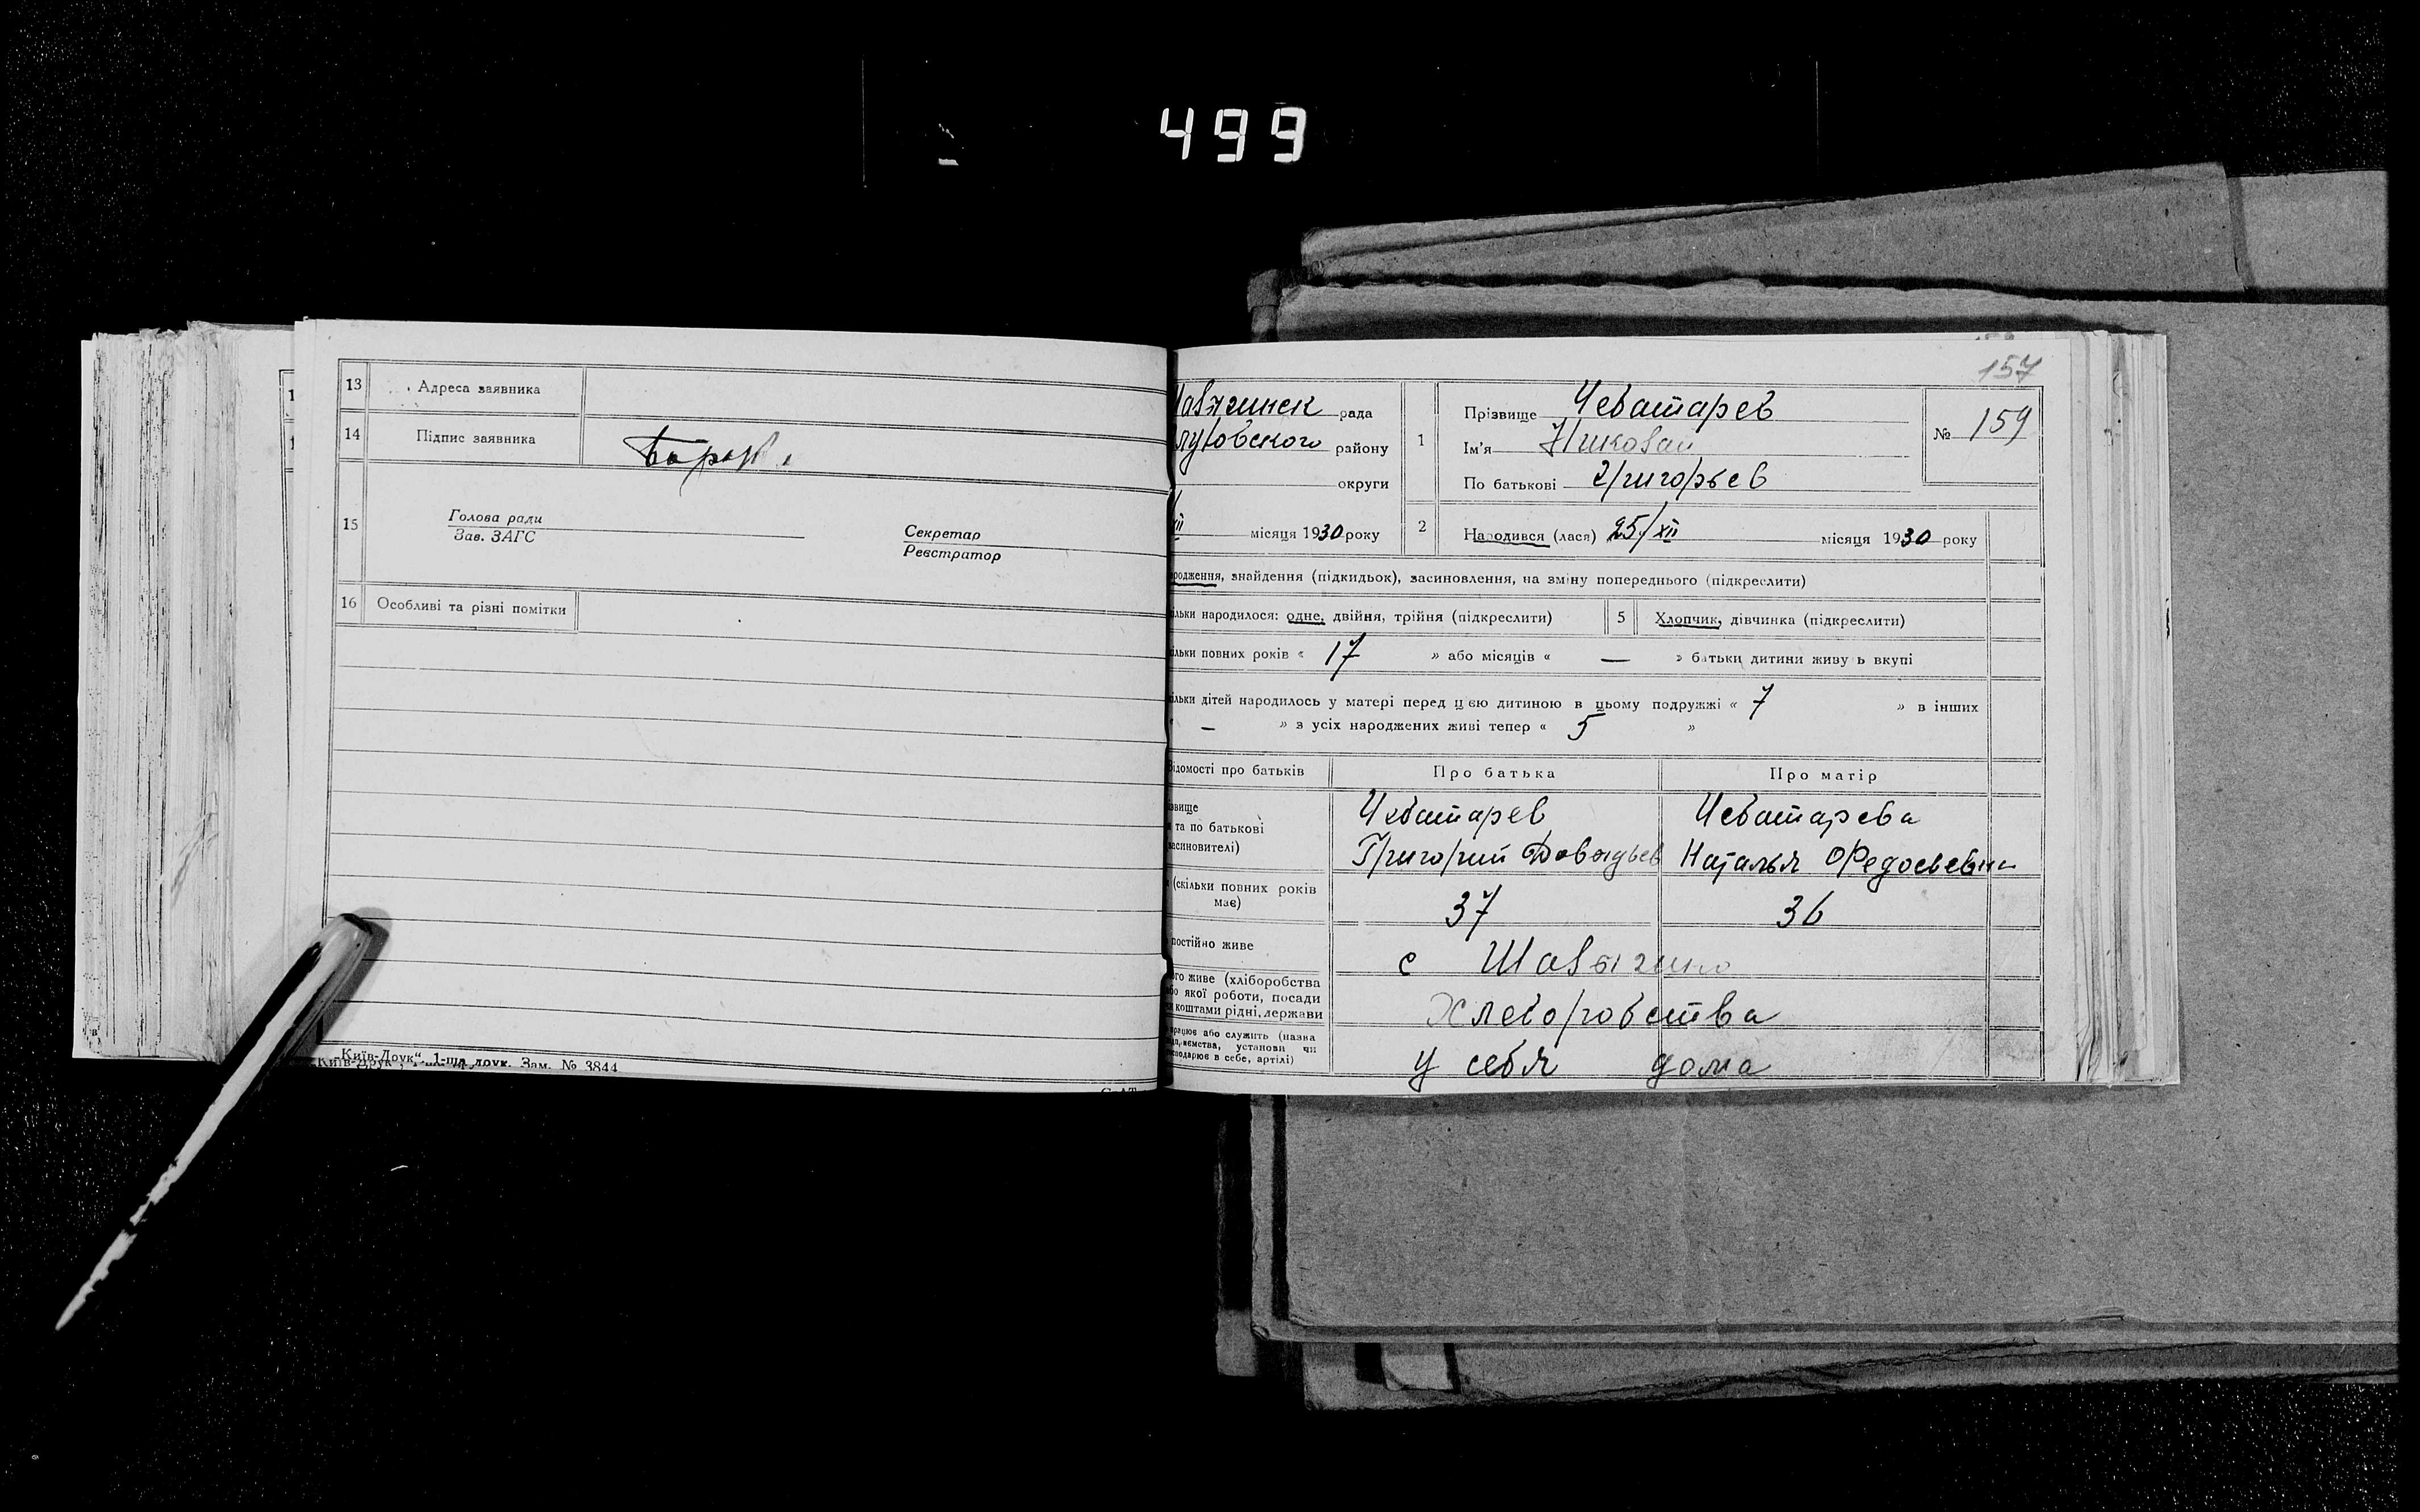 499
13 Адреса заявника
14 Підпис заявника
15 Голова ради
Зав. ЗАГС
Секретар
Реєстратор
16 Особливі та різні помітки
„Київ-Друк“, 1-ша друк. Зам. № 3844
157
рада
району
округи
XII місяця 1930 року
1 Прізвище Чеботарев
Ім'я Николай
По батькові Григорьев
№ 159
2 Народився (лася) 25/XII місяця 1930 року
родження, знайдення (підкидьок), засиновлення, на зміну попереднього (підкреслити)
ільки народилося: одне, двійня, трійня (підкреслити)
5 Хлопчик, дівчинка (підкреслити)
ільки повних років « 17 » або місяців « — » батьки дитини живу ь вкупі
ільки дітей народилось у матері перед цією дитиною в цьому подружжі « 7 » в інших
— » з усіх народжених живі тепер « 5 »
Відомості про батьків
Про батька
Про матір
звище
та по батькові
засиновителі)
Чеботарев
Григорий
Чеботарева
Наталья
(скільки повних років має)
37
36
постійно живе
с
го живе (хліборобства
бо якої роботи, посади
коштами рідні, держави
Хлеборобства
працює або служить (назва
установи чи
господарює в себе, артілі)
у себя дома